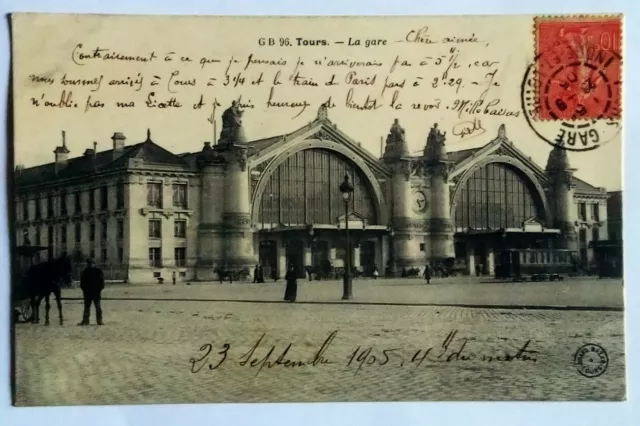 G B 96. Tours. — La gare — Chère aimée,
Contrairement à ce que je pensais je n'arriverai pas à 5h ½, car
nous sommes arrivés à Tours à 3/4 et le train de Paris part à 2.29. — Je
n'oublie pas ma Lisette et je suis heureux de bientôt la revoir. Mille baisers
23 Septembre 1905, 4h du matin